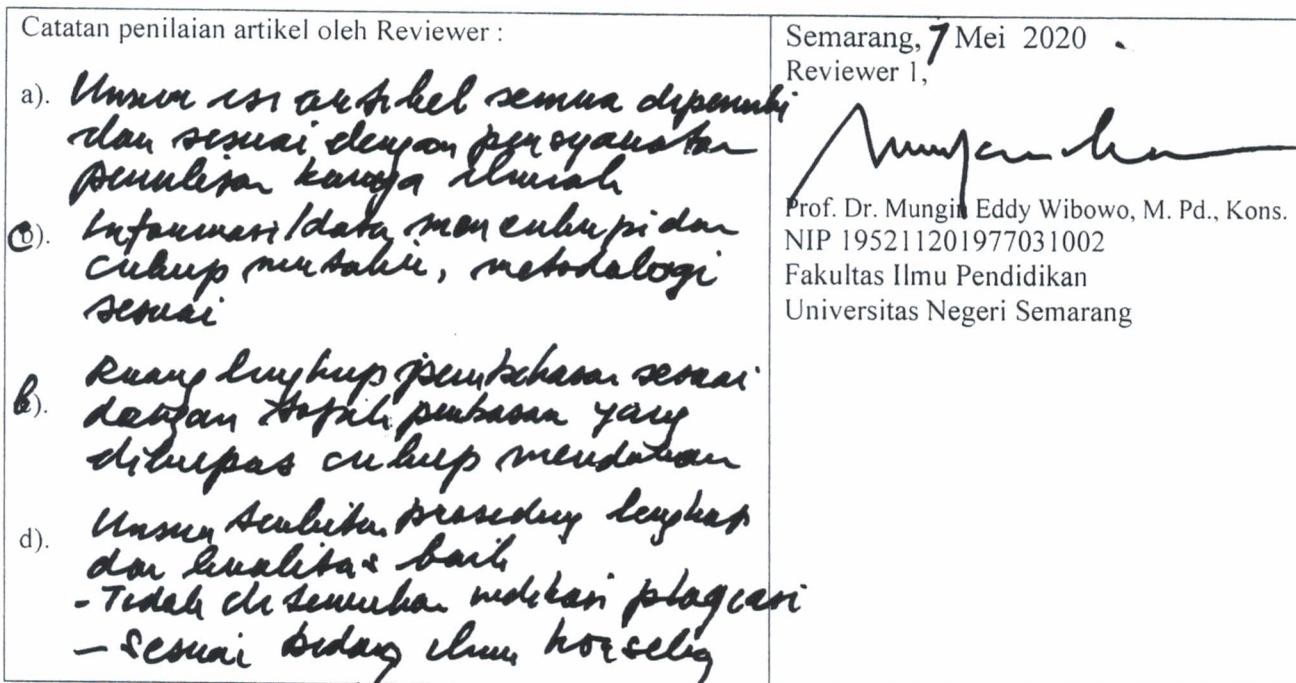 Catatan penilaian artikel oleh Reviewer :
a). Unsur isi artikel semua dipenuhi
dan sesuai dengan persyaratan
penulisan karya ilmiah
c). Informasi/data mencukupi dan
cukup mutahir, metodologi
sesuai
b). Ruang lingkup pembahasan sesuai
dengan topik yang
dikupas cukup mendalam
d). Unsur terbitan prosiding lengkap
dan kualitas baik
- Tidak ditemukan indikasi plagiasi
- Sesuai bidang ilmu konseling
Semarang, 7 Mei 2020
Reviewer 1,
Prof. Dr. Mungin Eddy Wibowo, M. Pd., Kons.
NIP 195211201977031002
Fakultas Ilmu Pendidikan
Universitas Negeri Semarang